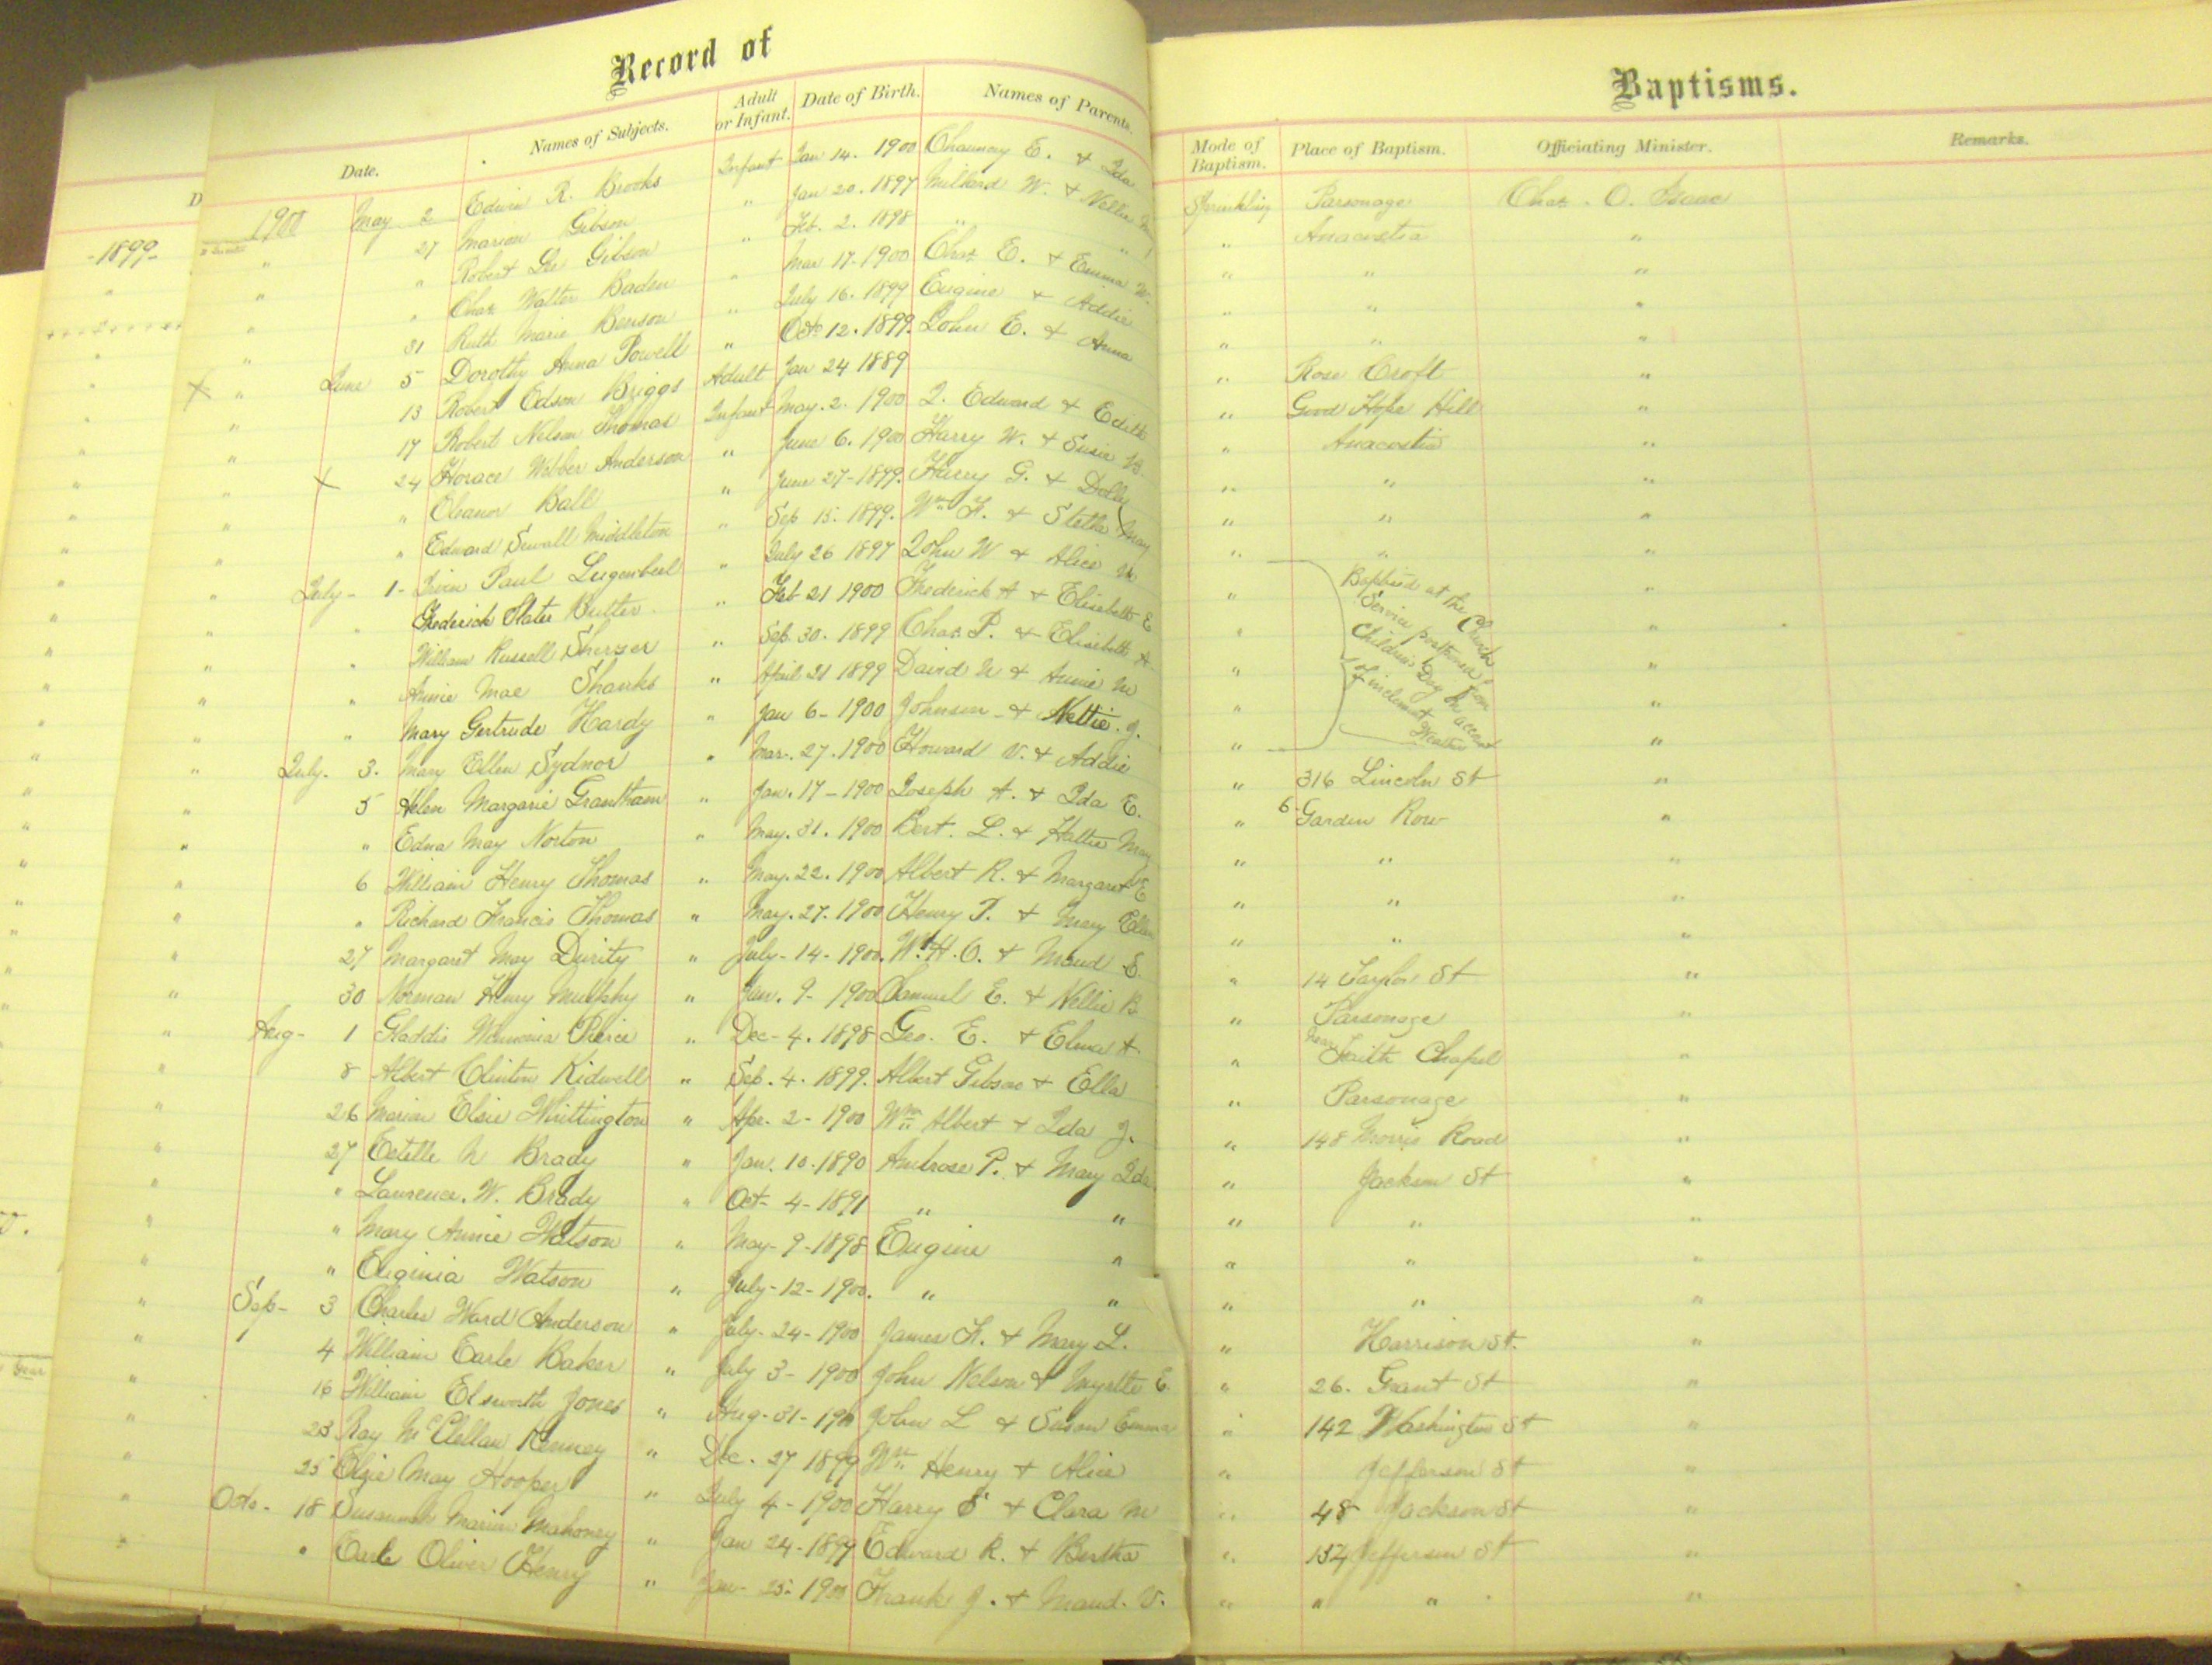 Record of
Baptisms.
Date. Names of Subjects. Adult or Infant. Date of Birth. Names of Parents. Mode of Baptism. Place of Baptism. Officiating Minister. Remarks.
-1899-
1900 May 2 Edwin R. Brooks Infant Jan 14. 1900 Chauncey E. & Ida Sprinkling Parsonage Chas. O. Isaac
" 27 Marion Gibson " Jan 20. 1897 Millard W. & Nellie " Anacostia "
" " Robert Lee Gibson " Feb. 2. 1898 " " " " "
" " Chas Walter Baden " Mar 17-1900 Chas E. & Emma W. " " "
" 31 Ruth Marie Benson " July 16. 1899 Eugine & Addie " " "
X " June 5 Dorothy Anna Powell " Oct 12. 1899. John E. & Anna " Rose Croft "
" 13 Robert Edson Briggs Adult Jan 24 1889 " Good Hope Hill "
" 17 Robert Nelson Thomas Infant May. 2. 1900 J. Edward & Edith " Anacostia "
" X 24 Horace Webber Anderson " June 6. 1900 Harry W. & Susie " " "
" " Eleanor Ball " June 27-1899. Harry G. & Dolly " " "
" " Edward Sewall Middleton " Sep 15. 1899. Wm F. & Stella May " " "
" July - 1 - Irvin Paul Lugenbeel " July 26 1897 John W & Alice M " Baptised at the Church "
" " Frederick Slater Butler " Feb 21 1900 Frederick A & Elisabeth E " Service postponed from "
" " William Russell Sherzer " Sep. 30. 1899 Chas. P. & Elisabeth A. " Children's Day on account "
" " Annie Mae Shanks " April 21 1899 David N & Annie M " of inclement Weather "
" " Mary Gertrude Hardy " Jan 6 - 1900 Johnson & Nettie. J. " "
" July. 3. Mary Ellen Sydnor " Mar. 27. 1900 Howard V. & Addie " 316 Lincoln St "
" 5 Helen Margarie Grantham " Jan. 17 - 1900 Joseph A. & Ida E. " 6- Garden Row "
" " Edna May Norton " May. 31. 1900 Bert. L. & Hattie May " " "
" 6 William Henry Thomas " May. 22. 1900 Albert R. & Margaret E " " "
" " Richard Francis Thomas " May. 27. 1900 Henry T. & Mary Ellen " " "
" 27 Margaret May Durity " July - 14 - 1900. Wm H. O. & Maud E. " 14 Taylor St "
" 30 Norman Henry Murphy " Jan. 9 - 1900 Samuel E. & Nellie B " Parsonage "
" Aug - 1 Gladdis Pierce " Dec - 4. 1898 Geo. E. & Elma A. " near Faith Chapel "
" 8 Albert Clinton Kidwell " Sep. 4. 1899. Albert Gibson & Ella " Parsonage "
" 26 Marian Elsie Whittington " Apr. 2 - 1900 Wm Albert & Ida J. " 148 Morris Road "
" 27 Estelle N Brady " Jan. 10. 1890 Ambrose P. & Mary Ida " Jackson St "
" " Laurence. W. Brady " Oct - 4 - 1891 " " " " "
" " Mary Annie Watson " May - 9 - 1898 Eugine " " " "
" " Euginia Watson " July - 12 - 1900. " " " " "
" Sep - 3 Charles Ward Anderson " July - 24 - 1900 James F. & Mary L. " Harrison St. "
" 4 William Earle Baker " July 3 - 1900 John Nelson & Myrtle E. " 26. Grant St "
" 16 William Elsworth Jones " Aug - 31 - 1900 John L & Susan Emma " 142 Washington St "
" 23 Ray McClellan Kenney " Dec. 27 1899 Wm Henry & Alice " Jefferson St "
" 25 Elsie May Hooper " July 4 - 1900 Harry S & Clara M " 48 Jackson St "
" Oct. - 18 Susannah Marion Mahoney " Jan 24 - 1897 Edward R. & Bertha " 134 Jefferson St "
" " Earle Oliver Henry " Jan - 25 - 1900 Frank J. & Maud. V. " " " "